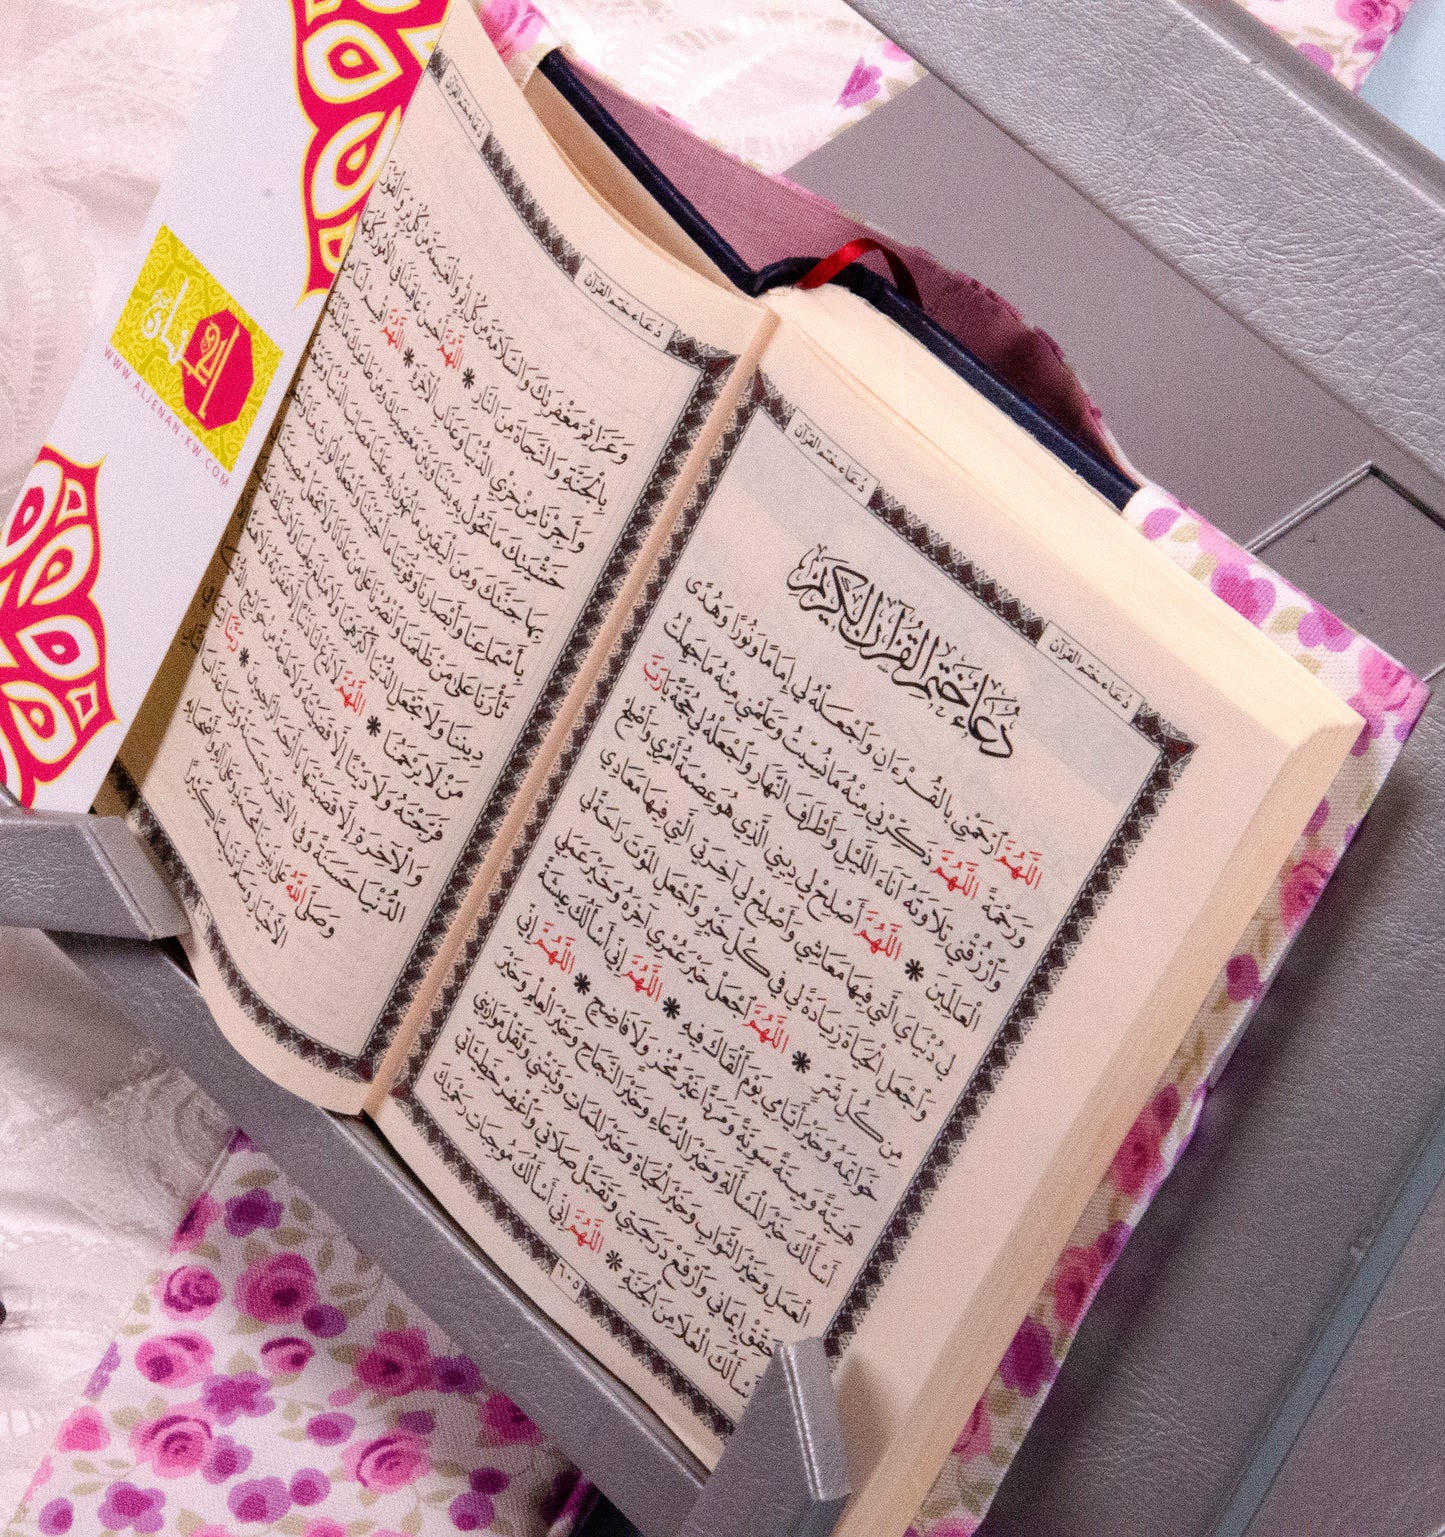 دُعَاء خَتْمِ القُرْآن
دُعَاء خَتْمِ القُرْآن
دُعَاءُ خَتْمِ القُرْآنِ الكَرِيْمِ
اللَّهُمَّ ارْحَمْنِي بِالقُرْءَانِ وَاجْعَلْهُ لِي إِمَامًا وَنُورًا وَهُدًى
وَرَحْمَةً اللَّهُمَّ ذَكِّرْنِي مِنْهُ مَانُسِّيتُ وَعَلِّمْنِي مِنْهُ مَاجَهِلْتُ
وَارْزُقْنِي تِلَاوَتَهُ آنَاءَ اللَّيْلِ وَأَطْرَافَ النَّهَارِ وَاجْعَلْهُ لِي حُجَّةً يَارَبَّ
الْعَالَمِينَ * اللَّهُمَّ أَصْلِحْ لِي دِينِي الَّذِي هُوَ عِصْمَةُ أَمْرِي وَأَصْلِحْ
لِي دُنْيَايَ الَّتِي فِيهَا مَعَاشِي وَأَصْلِحْ لِي آخِرَتِي الَّتِي فِيهَا مَعَادِي
وَاجْعَلِ الْحَيَاةَ زِيَادَةً لِي فِي كُلِّ خَيْرٍ وَاجْعَلِ الْمَوْتَ رَاحَةً لِي
مِن كُلِّ شَرٍّ * اللَّهُمَّ اجْعَلْ خَيْرَ عُمْرِي آخِرَهُ وَخَيْرَ عَمَلِي
خَوَاتِمَهُ وَخَيْرَ أَيَّامِي يَوْمَ أَلْقَاكَ فِيهِ * اللَّهُمَّ إِنِّي أَسْأَلُكَ عِيشَةً
هَنِيَّةً وَمِيتَةً سَوِيَّةً وَمَرَدًّا غَيْرَ مُخْزٍ وَلَا فَاضِحٍ * اللَّهُمَّ إِنِّي
أَسْأَلُكَ خَيْرَ الْمَسْأَلَةِ وَخَيْرَ الدُّعَاءِ وَخَيْرَ النَّجَاحِ وَخَيْرَ الْعِلْمِ وَخَيْرَ
الْعَمَلِ وَخَيْرَ الثَّوَابِ وَخَيْرَ الْحَيَاةِ وَخَيْرَ الْمَمَاتِ وَثَبِّتْنِي وَثَقِّلْ مَوَازِينِي
وَحَقِّقْ إِيمَانِي وَارْفَعْ دَرَجَتِي وَتَقَبَّلْ صَلَاتِي وَاغْفِرْ خَطِيئَاتِي
وَأَسْأَلُكَ الْعُلَا مِنَ الْجَنَّةِ * اللَّهُمَّ إِنِّي أَسْأَلُكَ مُوجِبَاتِ رَحْمَتِكَ
٦٠٥
دُعَاء خَتْمِ القُرْآن
دُعَاء خَتْمِ القُرْآن
وَعَزَائِمَ مَغْفِرَتِكَ وَالسَّلَامَةَ مِن كُلِّ إِثْمٍ وَالْغَنِيمَةَ مِن كُلِّ بِرٍّ وَالْفَوْزَ
بِالْجَنَّةِ وَالنَّجَاةَ مِنَ النَّارِ * اللَّهُمَّ أَحْسِنْ عَاقِبَتَنَا فِي الْأُمُورِ كُلِّهَا
وَأَجِرْنَا مِنْ خِزْيِ الدُّنْيَا وَعَذَابِ الْآخِرَةِ * اللَّهُمَّ اقْسِمْ لَنَا مِنْ
خَشْيَتِكَ مَا تَحُولُ بِهِ بَيْنَنَا وَبَيْنَ مَعْصِيَتِكَ وَمِنْ طَاعَتِكَ
بِهَا جَنَّتَكَ وَمِنَ الْيَقِينِ مَا تُهَوِّنُ بِهِ عَلَيْنَا مَصَائِبَ الدُّنْيَا
بِأَسْمَاعِنَا وَأَبْصَارِنَا وَقُوَّتِنَا مَا أَحْيَيْتَنَا وَاجْعَلْهُ الْوَارِثَ مِنَّا
ثَأْرَنَا عَلَى مَنْ ظَلَمَنَا وَانْصُرْنَا عَلَى مَنْ عَادَانَا وَلَا تَجْعَلْ
دِينِنَا وَلَا تَجْعَلِ الدُّنْيَا أَكْبَرَ هَمِّنَا وَلَا مَبْلَغَ عِلْمِنَا
مَنْ لَا يَرْحَمُنَا * اللَّهُمَّ لَا تَدَعْ لَنَا ذَنْبًا إِلَّا غَفَرْتَهُ
فَرَّجْتَهُ وَلَا دَيْنًا إِلَّا قَضَيْتَهُ وَلَا حَاجَةً مِنْ حَوَائِجِ
وَالْآخِرَةِ إِلَّا قَضَيْتَهَا يَا أَرْحَمَ الرَّاحِمِينَ * رَبَّنَا
الدُّنْيَا حَسَنَةً وَفِي الْآخِرَةِ حَسَنَةً وَقِنَا عَذَابَ
وَصَلَّى اللَّهُ عَلَى نَبِيِّنَا مُحَمَّدٍ وَعَلَى آلِهِ وَأَصْحَابِهِ
الْأَخْيَارِ وَسَلَّمَ تَسْلِيمًا كَثِيرًا
WWW.ALJENAN-KW.COM